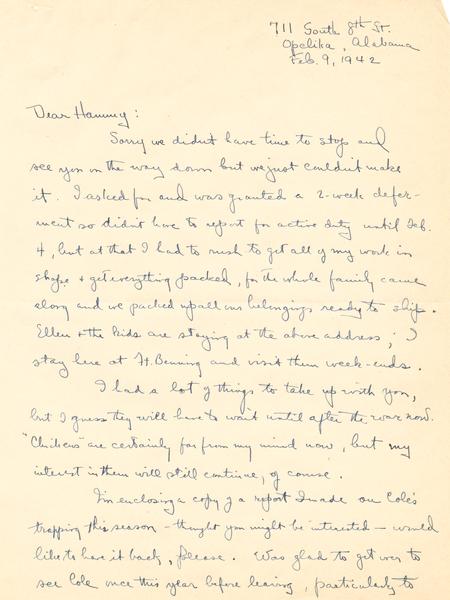 711 South 8th St.
Opelika, Alabama
Feb. 9, 1942
Dear Hammy:
Sorry we didn't have time to stop and
see you on the way down but we just couldn't make
it. I asked for and was granted a 2-week defer-
ment so didn't have to report for active duty until Feb.
4, but at that I had to rush to get all of my work in
shape + get everything packed, for the whole family came
along and we packed up all our belongings ready to ship.
Ellen + the kids are staying at the above address; I
stay here at Ft. Benning and visit them week-ends.
I had a lot of things to take up with you,
but I guess they will have to wait until after the war now.
are certainly far from my mind now, but my
interest in them will still continue, of course.
I'm enclosing a copy of a report I made on Cole's
trapping this season - thought you might be interested - would
like to have it back, please. Was glad to get over to
see Cole once this year before leaving, particularly to